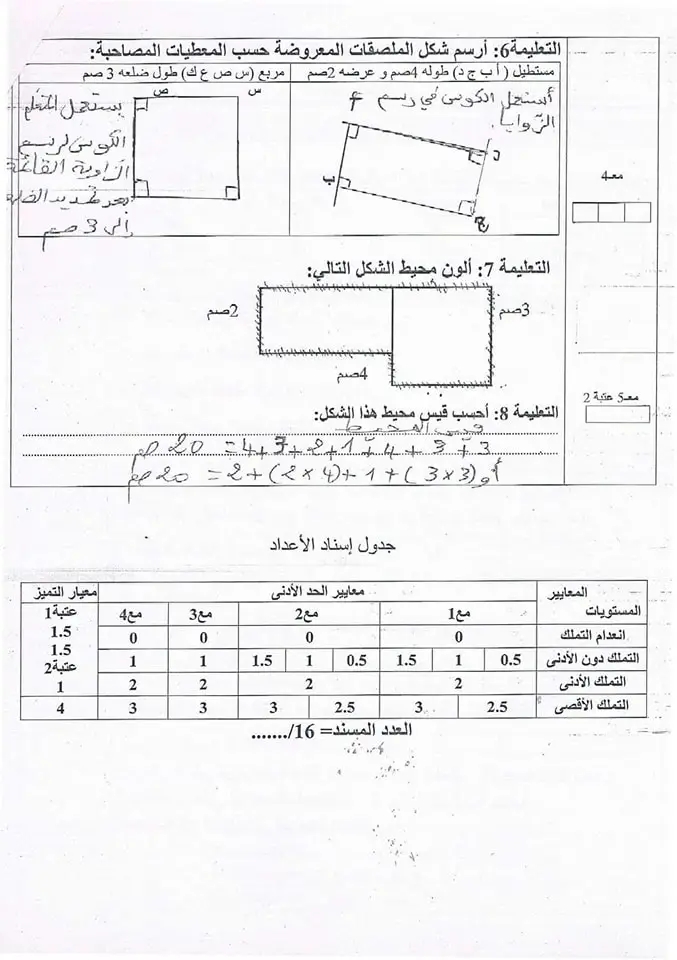 التعليمة6: أرسم شكل الملصقات المعروضة حسب المعطيات المصاحبة:
مستطيل ( أ ب ج د) طوله 4صم و عرضه 2صم
مربع (س ص ع ك) طول ضلعه 3 صم
أستعمل الكوس في رسم
الزوايا
ب
د
ج
س
ص
يستعمل المتعلم
الكوس لرسم
الزاوية القائمة
إلى 3 صم
مع4
التعليمة 7: ألون محيط الشكل التالي:
2صم
3صم
4صم
مع5 عتبة 2
التعليمة 8: أحسب قيس محيط هذا الشكل:
قيس المحيط
3 + 3 + 4 + 1 + 2 + 3 + 4 = 20 صم
أو (3 × 3) + 1 + (4 × 2) + 2 = 20 صم
جدول إسناد الأعداد
المعايير
المستويات
معايير الحد الأدنى
معيار التميز
مع1
مع2
مع3
مع4
عتبة1
1.5
1.5
عتبة2
1
4
انعدام التملك 0 0 0 0
التملك دون الأدنى 0.5 1 1.5 0.5 1 1.5 1 1
التملك الأدنى 2 2 2 2
التملك الأقصى 2.5 3 2.5 3 3 3
العدد المسند= 16/.......